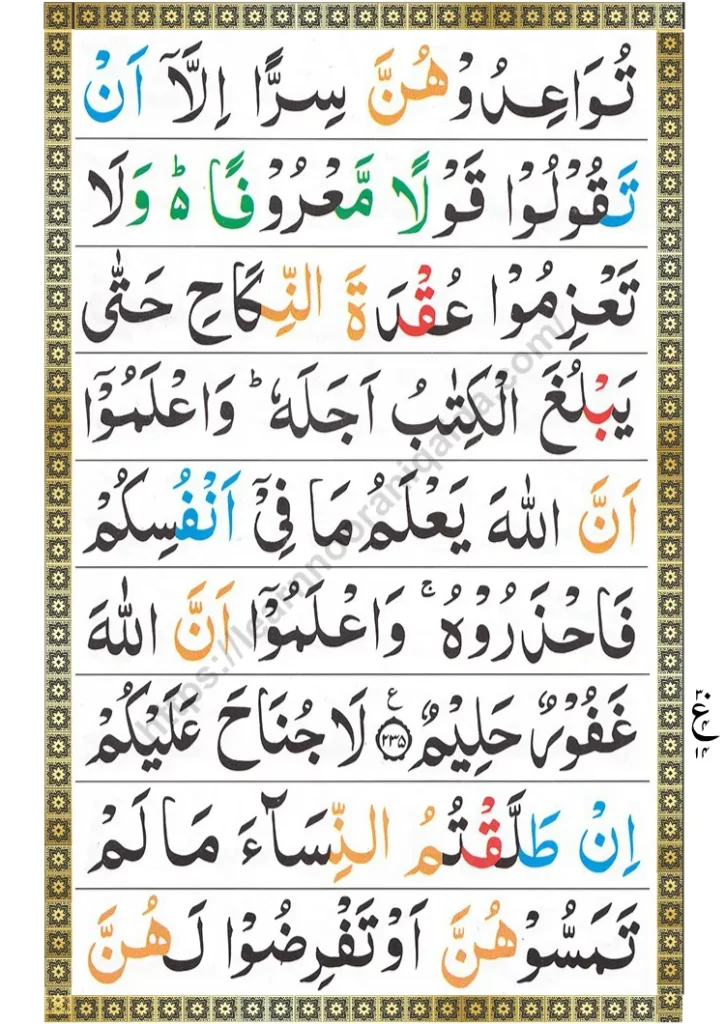 تُوَاعِدُوْهُنَّ سِرًّا اِلَّاۤ اَنْ
تَقُوْلُوْا قَوْلًا مَّعْرُوْفًا ۵ؕ وَلَا
تَعْزِمُوْا عُقْدَةَ النِّكَاحِ حَتّٰى
يَبْلُغَ الْكِتٰبُ اَجَلَهٗ ؕ وَاعْلَمُوْۤا
اَنَّ اللّٰهَ يَعْلَمُ مَا فِىْۤ اَنْفُسِكُمْ
فَاحْذَرُوْهُ ۚ وَاعْلَمُوْۤا اَنَّ اللّٰهَ
غَفُوْرٌ حَلِيْمٌ ع ﴿۲۳۵﴾ لَا جُنَاحَ عَلَيْكُمْ
۳۰ ع ۴ ۱۴
اِنْ طَلَّقْتُمُ النِّسَآءَ مَا لَمْ
تَمَسُّوْهُنَّ اَوْ تَفْرِضُوْا لَهُنَّ
https://learnnooraniqaida.com/